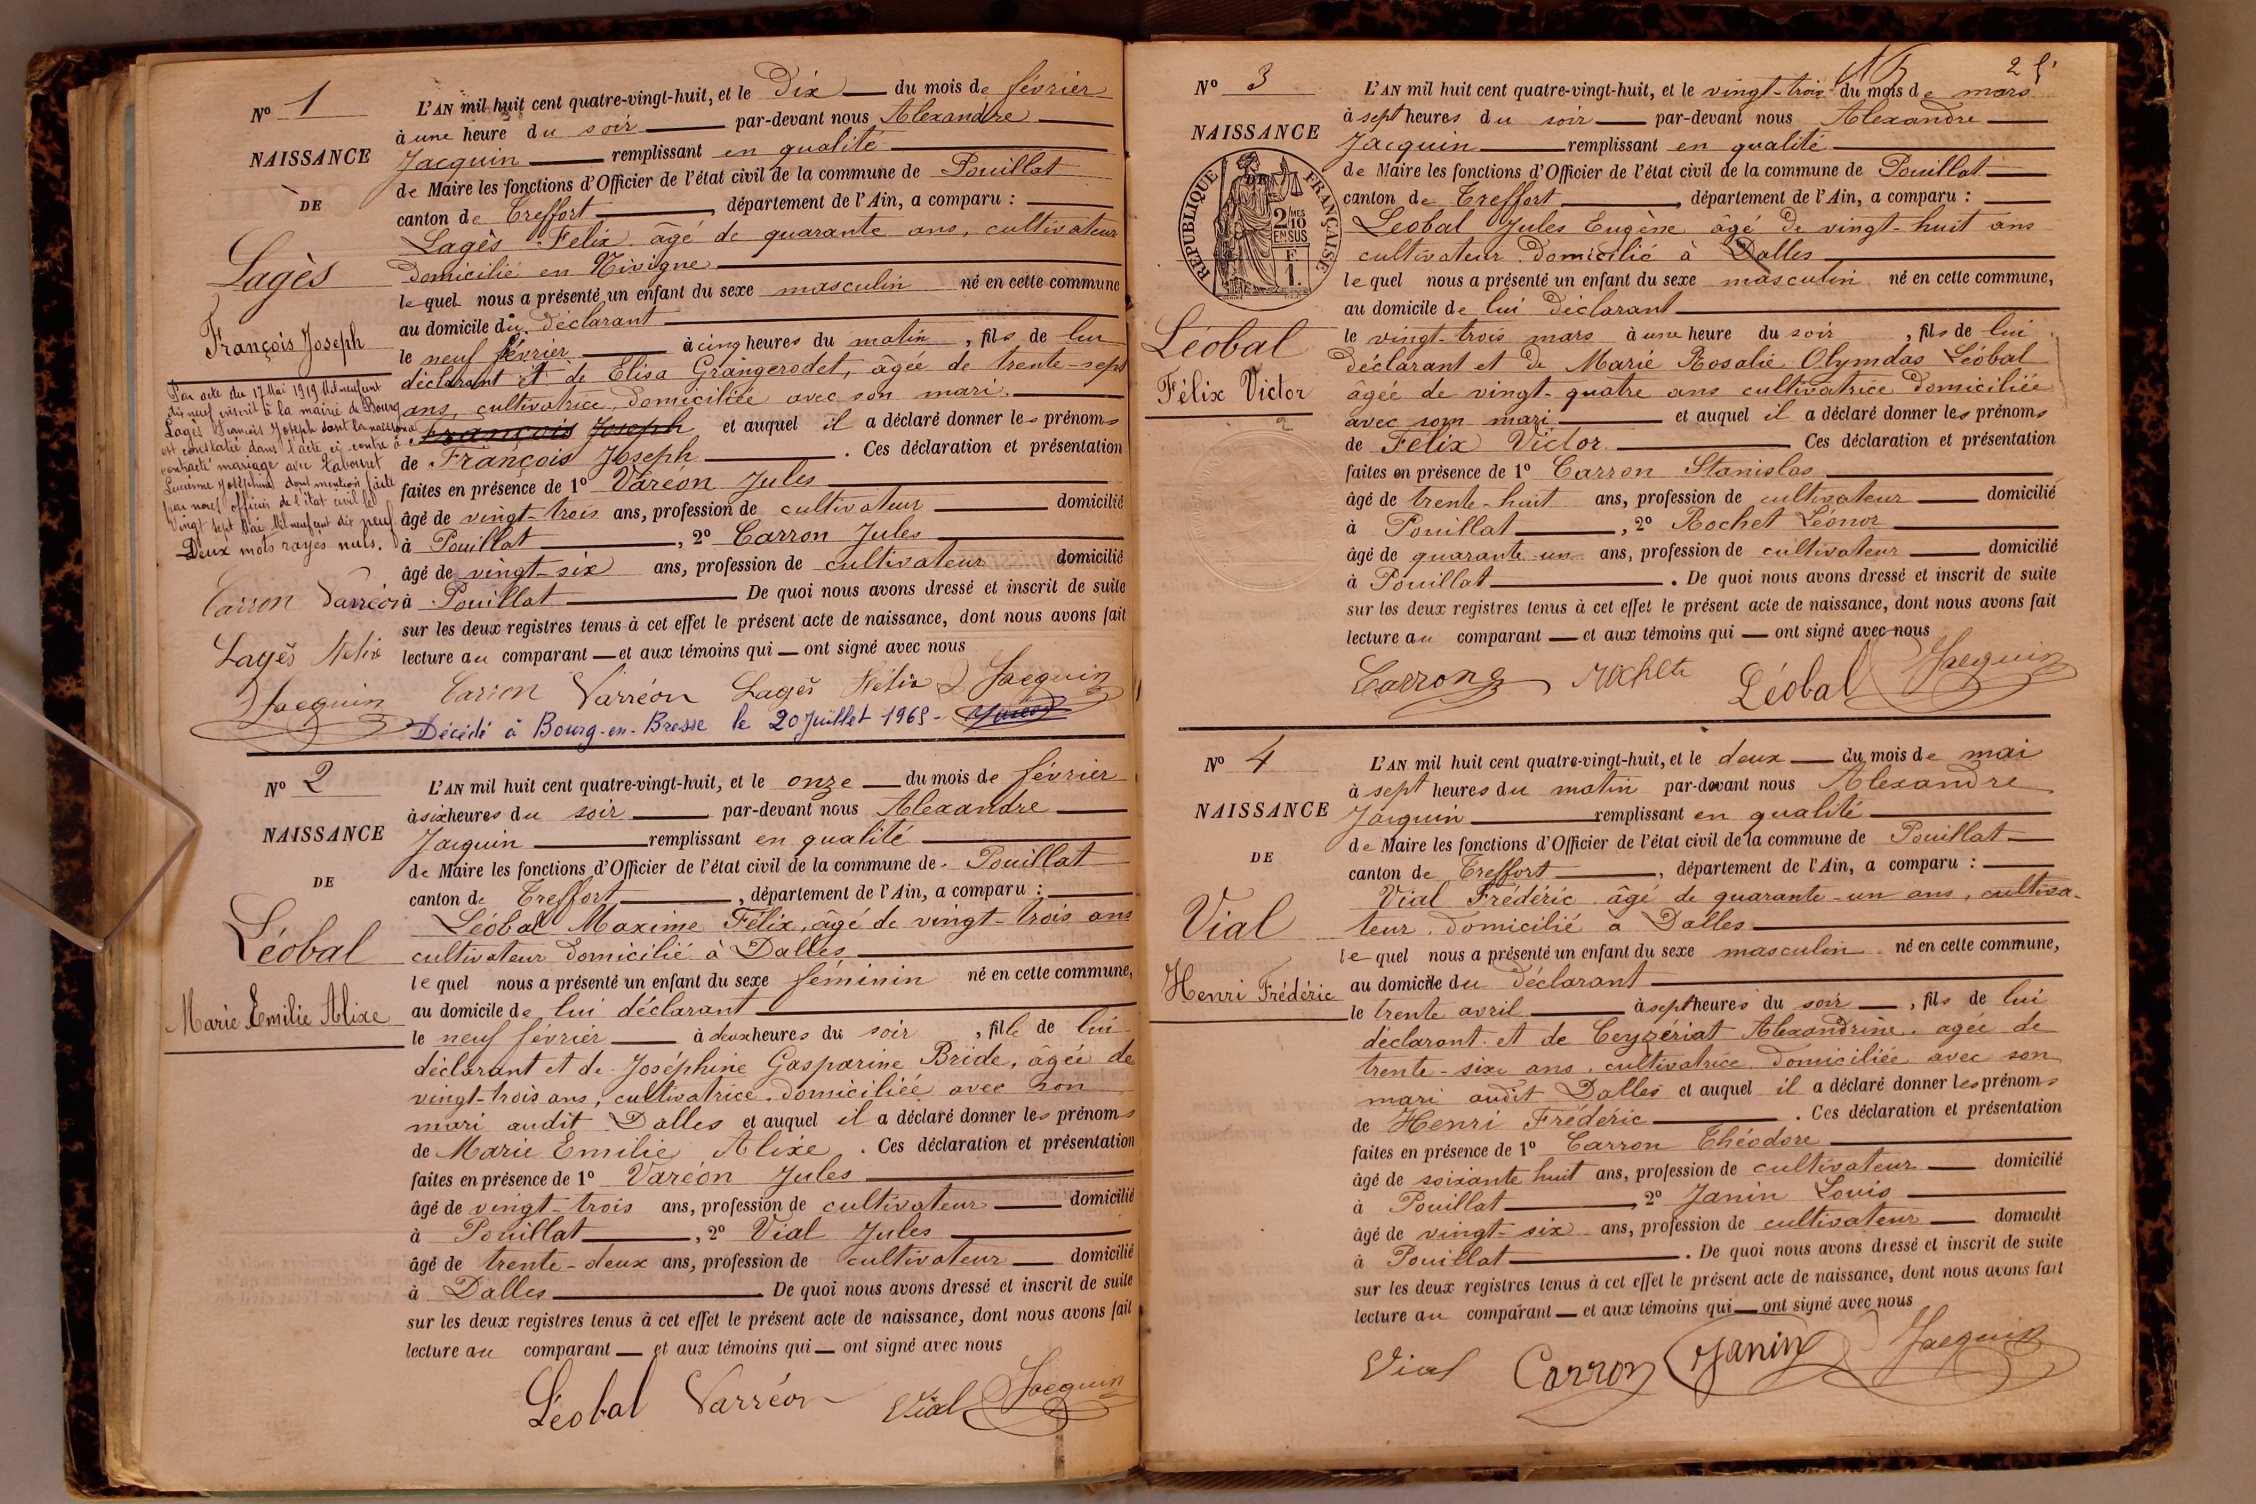 N° 1
NAISSANCE
DE
Lagès
François Joseph
Par acte du 17 Mai 1919 Mil neuf cent
dix neuf inscrit à la mairie de Bourg
Lagès François Joseph dont la naissance
est constatée dans l'acte ci-contre à
contracté mariage avec Tabouret
Lucienne Joséphine dont mention faite
par nous officier de l'état civil le
Vingt sept Mai Mil neuf cent dix neuf
Deux mots rayés nuls.
Carron Varréon
Lagès Félix
Jacquin
L'AN mil huit cent quatre-vingt-huit, et le Dix du mois de février
à une heure du soir par-devant nous Alexandre
Jacquin remplissant en qualité
de Maire les fonctions d'Officier de l'état civil de la commune de Pouillat
canton de Treffort, département de l'Ain, a comparu :
Lagès Félix âgé de quarante ans, cultivateur
domicilié en Nivigne
lequel nous a présenté un enfant du sexe masculin né en cette commune
au domicile du déclarant
le neuf février à cinq heures du matin, fils de lui
déclarant et de Elisa Grangerodet, âgée de trente-sept
ans, cultivatrice, domiciliée avec son mari.
François Joseph et auquel il a déclaré donner les prénoms
de François Joseph. Ces déclaration et présentation
faites en présence de 1° Varéon Jules
âgé de vingt-trois ans, profession de cultivateur domicilié
à Pouillat, 2° Carron Jules
âgé de vingt-six ans, profession de cultivateur domicilié
à Pouillat De quoi nous avons dressé et inscrit de suite
sur les deux registres tenus à cet effet le présent acte de naissance, dont nous avons fait
lecture au comparant et aux témoins qui ont signé avec nous
Carron Varréon Lagès Félix Jacquin
Décédé à Bourg-en-Bresse le 20 Juillet 1969-
N° 2
NAISSANCE
DE
Léobal
Marie Emilie Alixe
L'AN mil huit cent quatre-vingt-huit, et le onze du mois de février
à six heures du soir par-devant nous Alexandre
Jacquin remplissant en qualité
de Maire les fonctions d'Officier de l'état civil de la commune de Pouillat
canton de Treffort, département de l'Ain, a comparu :
Léobal Maxime Félix, âgé de vingt-trois ans
cultivateur domicilié à Dalles
lequel nous a présenté un enfant du sexe féminin né en cette commune,
au domicile de lui déclarant
le neuf février à deux heures du soir, fille de lui
déclarant et de Joséphine Gasparine Bride, âgée de
vingt-trois ans, cultivatrice domiciliée avec son
mari audit Dalles et auquel il a déclaré donner les prénoms
de Marie Emilie Alixe. Ces déclaration et présentation
faites en présence de 1° Varéon Jules
âgé de vingt-trois ans, profession de cultivateur domicilié
à Pouillat, 2° Vial Jules
âgé de trente-deux ans, profession de cultivateur domicilié
à Dalles De quoi nous avons dressé et inscrit de suite
sur les deux registres tenus à cet effet le présent acte de naissance, dont nous avons fait
lecture au comparant et aux témoins qui ont signé avec nous
Léobal Varréon Vial Jacquin
2
N° 3
NAISSANCE
DE
REPUBLIQUE FRANÇAISE
2/10MES
EN SUS
F
1.
Léobal
Félix Victor
L'AN mil huit cent quatre-vingt-huit, et le vingt-trois du mois de mars
à sept heures du soir par-devant nous Alexandre
Jacquin remplissant en qualité
de Maire les fonctions d'Officier de l'état civil de la commune de Pouillat
canton de Treffort, département de l'Ain, a comparu :
Léobal Jules Eugène âgé de vingt-huit ans
cultivateur domicilié à Dalles
lequel nous a présenté un enfant du sexe masculin né en cette commune,
au domicile de lui déclarant
le vingt-trois mars à une heure du soir, fils de lui
déclarant et de Marie Rosalie Olymdas Léobal
âgée de vingt-quatre ans cultivatrice domiciliée
avec son mari et auquel il a déclaré donner les prénoms
de Félix Victor. Ces déclaration et présentation
faites en présence de 1° Carron Stanislas
âgé de trente-huit ans, profession de cultivateur domicilié
à Pouillat, 2° Rochet Léonor
âgé de quarante-un ans, profession de cultivateur domicilié
à Pouillat. De quoi nous avons dressé et inscrit de suite
sur les deux registres tenus à cet effet le présent acte de naissance, dont nous avons fait
lecture au comparant et aux témoins qui ont signé avec nous
Carron Léobal Jacquin
N° 4
NAISSANCE
DE
Vial
Henri Frédéric
L'AN mil huit cent quatre-vingt-huit, et le deux du mois de mai
à sept heures du matin par-devant nous Alexandre
Jacquin remplissant en qualité
de Maire les fonctions d'Officier de l'état civil de la commune de Pouillat
canton de Treffort, département de l'Ain, a comparu :
Vial Frédéric âgé de quarante-un ans, cultiva-
teur domicilié à Dalles
lequel nous a présenté un enfant du sexe masculin né en cette commune,
au domicile du déclarant
le trente avril à sept heures du soir, fils de lui
déclarant et de Ceyzériat Alexandrine, agée de
trente-six ans, cultivatrice domiciliée avec son
mari audit Dalles et auquel il a déclaré donner les prénoms
de Henri Frédéric. Ces déclaration et présentation
faites en présence de 1° Carron Théodore
âgé de soixante huit ans, profession de cultivateur domicilié
à Pouillat 2° Janin Louis
âgé de vingt-six ans, profession de cultivateur domicilié
à Pouillat. De quoi nous avons dressé et inscrit de suite
sur les deux registres tenus à cet effet le présent acte de naissance, dont nous avons fait
lecture au comparant et aux témoins qui ont signé avec nous
Vial Carron Janin Jacquin